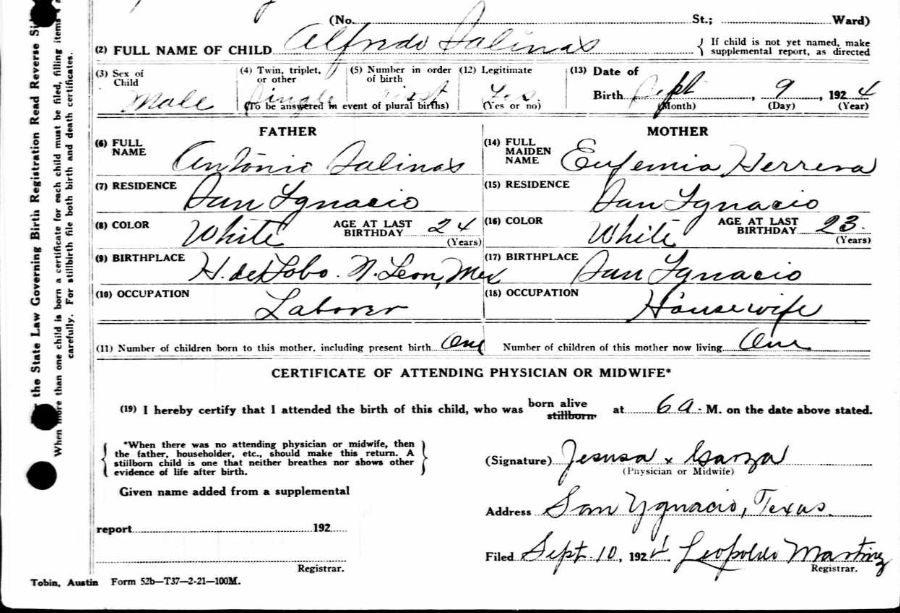 (No. St.; Ward)
(2) FULL NAME OF CHILD Alfredo Salinas { If child is not yet named, make supplemental report, as directed
(3) Sex of Child Male (4) Twin, triplet, or other Single (5) Number in order of birth First (12) Legitimate Yes (Yes or no) (13) Date of Birth Sept, 9, 1924
(To be answered in event of plural births) (Month) (Day) (Year)
FATHER MOTHER
(6) FULL NAME Antonio Salinas (14) FULL MAIDEN NAME Eufemia Herrera
(7) RESIDENCE San Ygnacio (15) RESIDENCE San Ygnacio
(8) COLOR White AGE AT LAST BIRTHDAY 24 (Years) (16) COLOR White AGE AT LAST BIRTHDAY 23. (Years)
(9) BIRTHPLACE H. del Lobo. N. Leon, Mex (17) BIRTHPLACE San Ygnacio
(10) OCCUPATION Laborer (18) OCCUPATION Housewife
(11) Number of children born to this mother, including present birth One Number of children of this mother now living One
CERTIFICATE OF ATTENDING PHYSICIAN OR MIDWIFE*
(19) I hereby certify that I attended the birth of this child, who was born alive stillborn at 6 a. M. on the date above stated.
*When there was no attending physician or midwife, then
the father, householder, etc., should make this return. A
stillborn child is one that neither breathes nor shows other
evidence of life after birth.
(Signature) Jesusa x Garza
(Physician or Midwife)
Given name added from a supplemental
Address San Ygnacio, Texas.
report 192
Filed Sept. 10, 1924 Leopoldo Martinez
Registrar. Registrar.
Tobin, Austin Form 52b—T37—2-21—100M.
the State Law Governing Birth Registration Read Reverse Sid
When more than one child is born a certificate for each child must be filed, filling items
carefully. For stillbirth file both birth and death certificates.